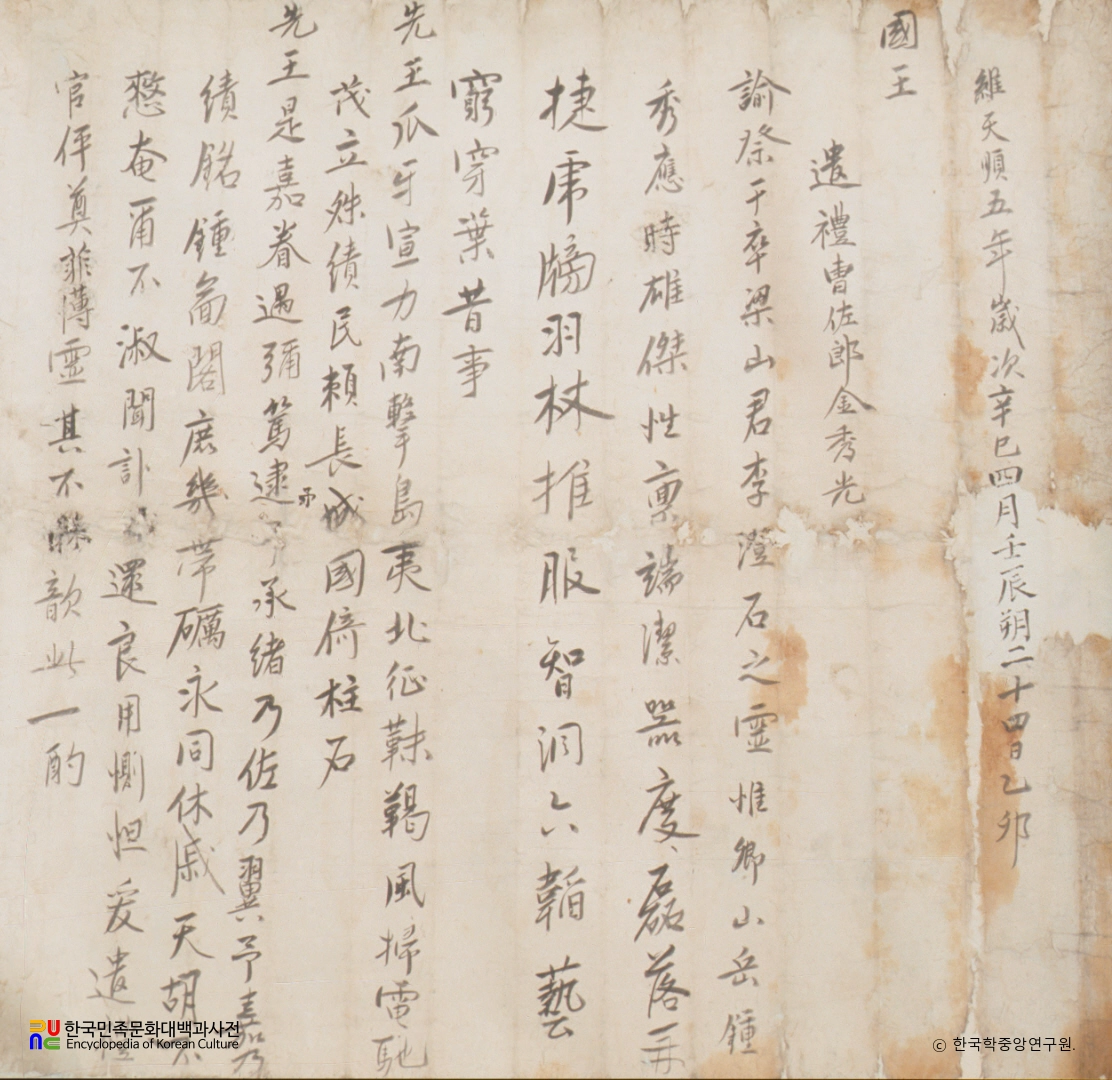 維天順五年歲次辛巳四月壬辰朔二十四日乙卯
國王
遣禮曹佐郎金秀光
諭祭于卒梁山君李澄石之靈惟卿山岳鍾
秀應時雄傑性稟端潔器度磊落再
捷虎牓羽林推服智洞六韜藝
窮穿葉昔事
先王爪牙宣力南擊島夷北征靺鞨風掃電馳
茂立殊績民賴長城國倚柱石
先王是嘉眷遇彌篤逮予承緒乃佐乃翼予嘉乃
績銘鍾啚閣庶幾帶礪永同休戚天胡不
憗奄罹不淑聞訃還良用惻怛爰遣
官伻奠菲薄靈其不昧歆此一酌
한국민족문화대백과사전
Encyclopedia of Korean Culture
ⓒ 한국학중앙연구원.